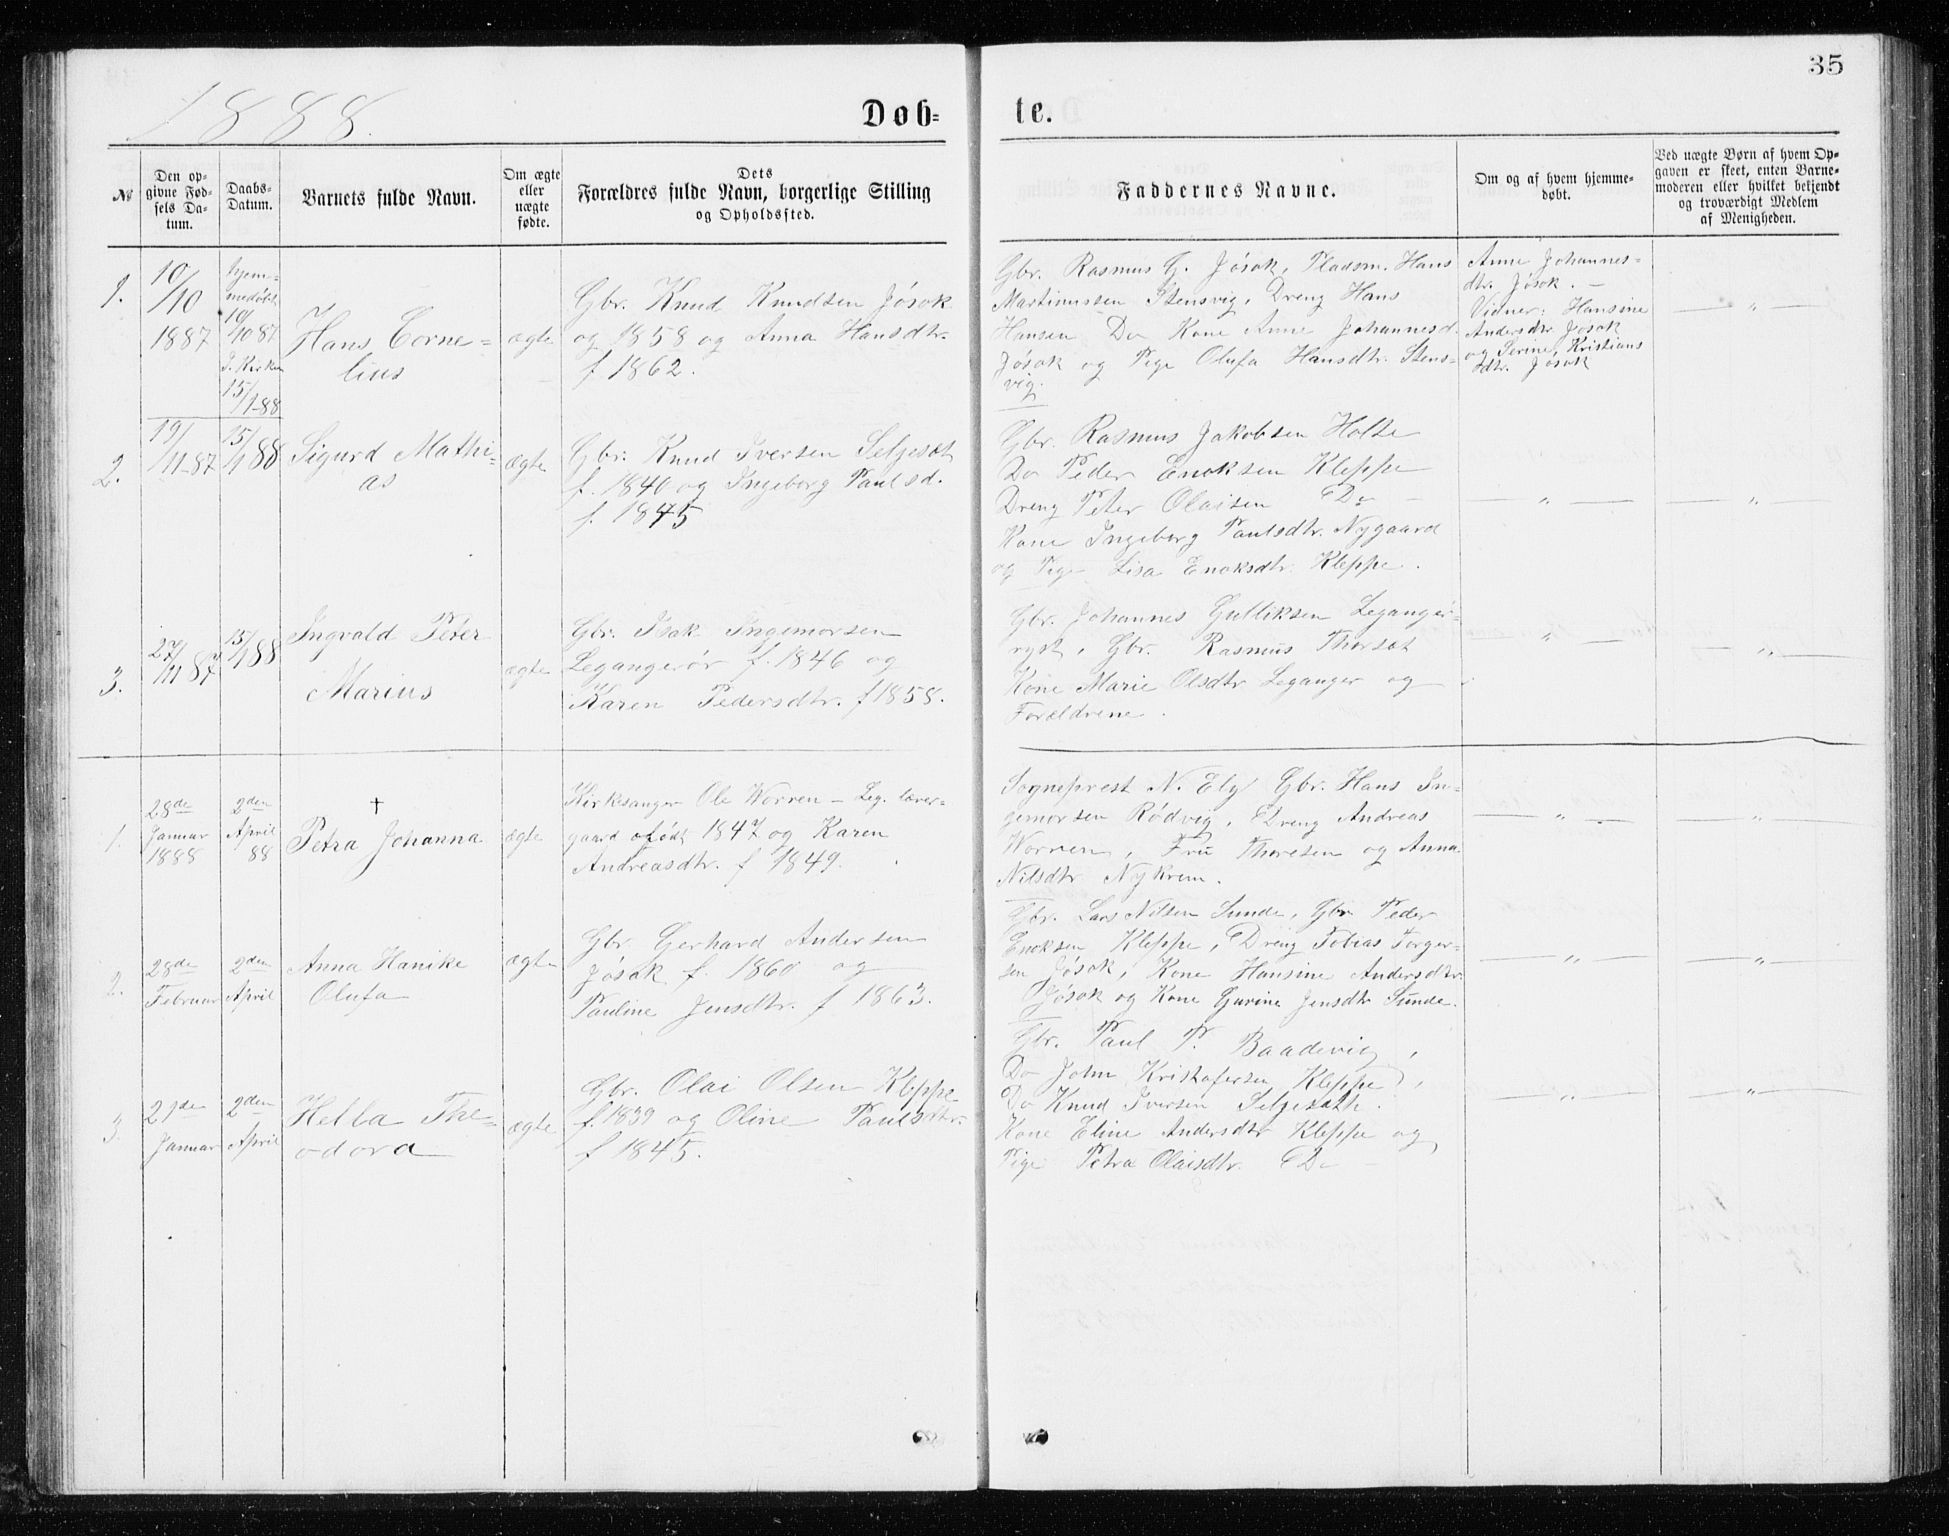 35
1888.
Døb-
te.
№
Den op-
givne Fød-
sels Da-
tum.
Daabs-
Datum.
Barnets fulde Navn.
Om ægte
eller
uægte
fødte.
Dets
Forældres fulde Navn, borgerlige Stilling
og Opholdssted.
Faddernes Navne.
Om og af hvem hjemme-
døbt.
Ved uægte Børn af hvem Op-
gaven er skeet, enten Barne-
moderen eller hvilket bekjendt
og troværdigt Medlem
af Menigheden.
1.
10/10
1887
hjem-
medøbt
10/10 87
I. Kirken
15/1-88
Hans Corne-
lius
ægte
Gbr. Knud Knudsen Jøsok
og 1858 og Anna Hansdtr.
f 1862.
Gbr. Rasmus G. Jøsok, Pladsm. Hans
Martinussen Stensvig, Dreng Hans
Hansen Do Kone Anne Johannesd.
Jøsok og Pige Olufa Hansdtr. Stens-
vig.
Anne Johannes-
dtr. Jøsok. —
Vidner: Hansine
Andersdtr Jøsok
og Serine Kristians
dtr. Jøsok
— " —
2.
19/11-87
15/1 88
Sigurd Mathi-
as
ægte
Gbr. Knud Iversen Seljeset
f. 1840 og Ingeborg Paulsd.
f. 1845
Gbr. Rasmus Jakobsen Holte
Do Peder Enoksen Kleppe
Dreng Peter Olaisen Do —
Kone Ingeborg Paulsdtr. Nygaard
og Pige Lisa Enoksdtr. Kleppe.
— " —
— " —
3.
27/11 87
15/1 88
Ingvald Peter
Marius
ægte
Gbr. Isak Ingemorsen
Legangerør f. 1846 og
Karen Pedersdtr. f 1858.
Gbr. Johannes Gulliksen Leganger-
ryst, Gbr. Rasmus Thorset
Kone Marie Olsdtr Leganger og
Forældrene.
— " —
— " —
1.
28de
Januar
1888
2den
April
88
†
Petra Johanna
ægte
Kirkesanger Ole Worren — Leg. lærer-
gaard født 1847 og Karen
Andreasdtr. f 1849.
Sogneprest N. Ely Gbr. Hans In-
gemorsen Rødvig, Dreng Andreas
Worren, Fru Thoresen og Anna
Nilsdtr Nykrem.
— " —
— " —
2.
28de
Februar
2den
April
Anna Hanike
Olufa
ægte
Gbr Gerhard Andersen
Jøsok f. 1860 og
Pauline Jensdtr. f 1863.
Gbr. Lars Nilsen Sunde, Gbr Peder
Enoksen Kleppe, Dreng Tobias Torger-
sen Jøsok, Kone Hansine Andersdtr.
Jøsok og Kone Gurine Jensdtr Sunde.
— " —
— " —
3.
21de
Januar
2den
April
Hella The-
odora
ægte
Gbr. Olai Olsen Kleppe
f. 1839 og Oline Paulsdtr.
f 1845.
Gbr. Paul P. Baadevig,
Do John Kristofersen Kleppe,
Do Knud Iversen Seljeseth.
Kone Eline Andersdtr Kleppe og
Pige Petra Olaisdtr. Do —
— " —
— " —